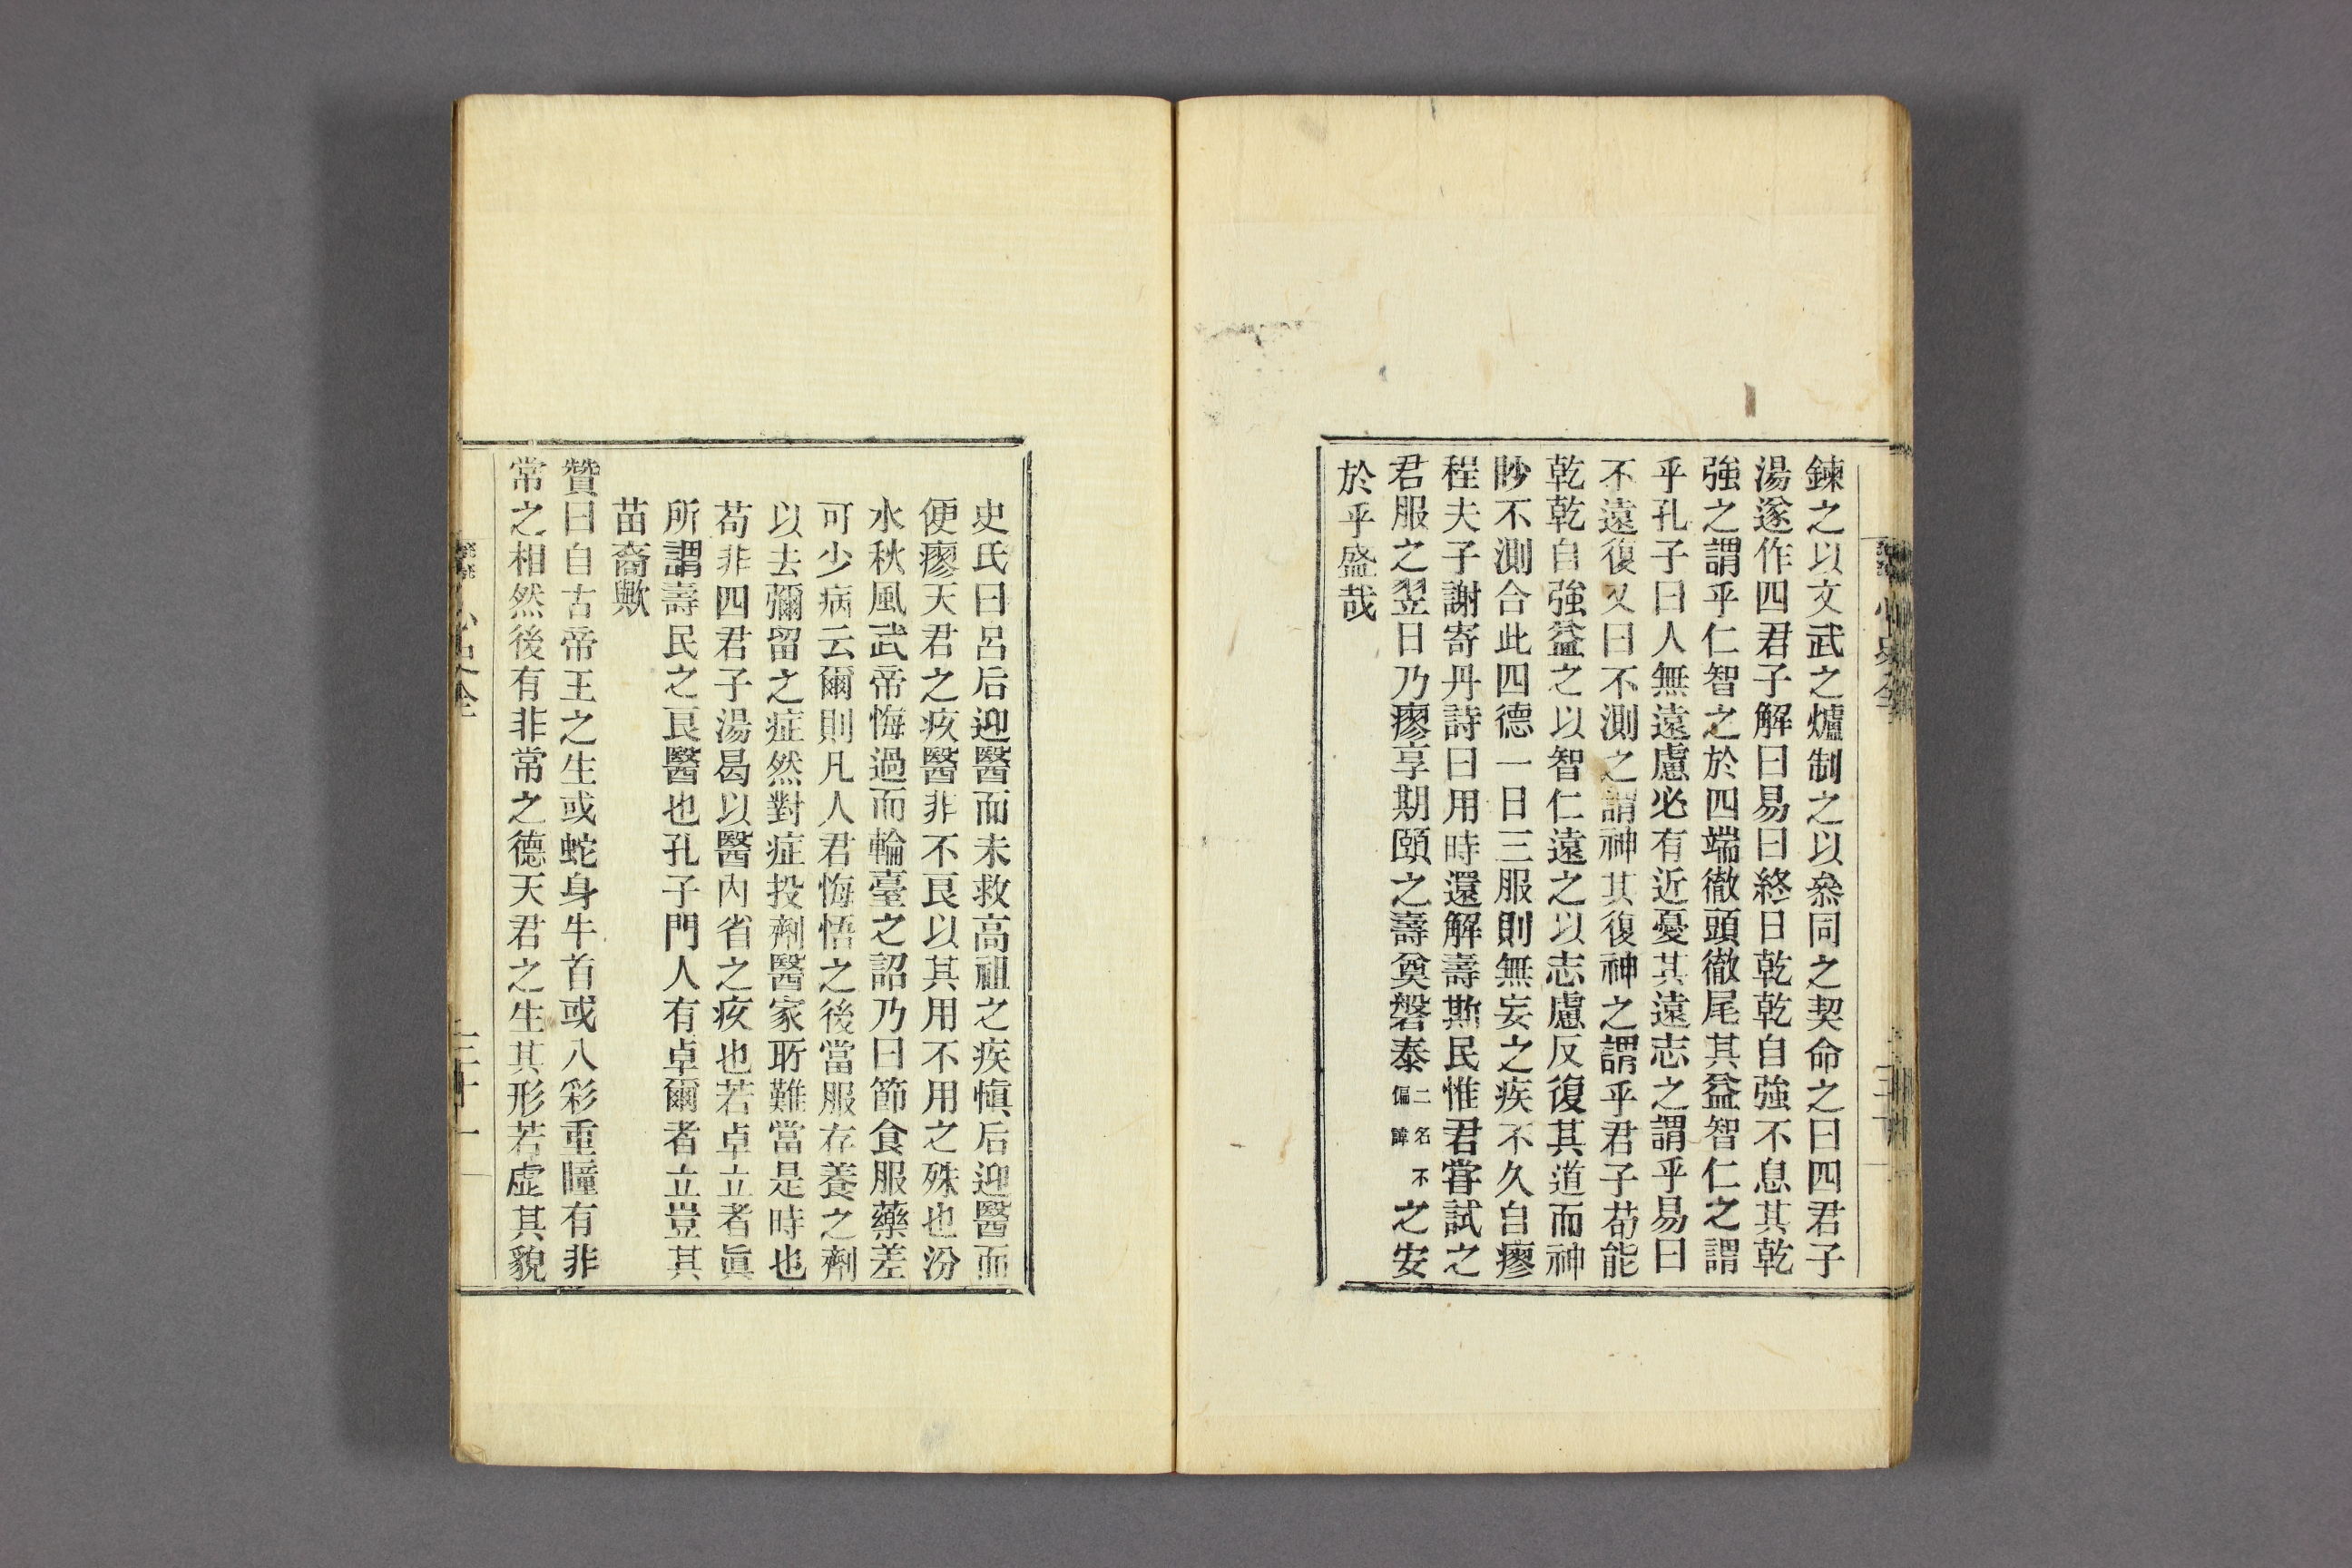 鍊之以文武之爐制之以叅同之契命之曰四君子
湯遂作四君子解曰易曰終日乾乾自強不息其乾
強之謂乎仁智之於四端徹頭徹尾其益智仁之謂
乎孔子曰人無遠慮必有近憂其遠志之謂乎易曰
不遠復又曰不測之謂神其復神之謂乎君子苟能
乾乾自強益之以智仁遠之以志慮反復其道而神
眇不測合此四德一日三服則無妄之疾不久自瘳
程夫子謝寄丹詩曰用時還解壽斯民惟君甞試之
君服之翌日乃瘳享期頤之壽奠磐泰二名不偏諱之安
於乎盛哉
史氏曰呂后迎醫而未救高祖之疾愼后迎醫而
便瘳天君之疢醫非不良以其用不用之殊也汾
水秋風武帝悔過而輪臺之詔乃曰節食服藥差
可少病云爾則凡人君悔悟之後當服存養之劑
以去彌留之症然對症投劑醫家所難當是時也
苟非四君子湯曷以醫內省之疢也若卓立者眞
所謂壽民之良醫也孔子門人有卓爾者立豈其
苗裔歟
贊曰自古帝王之生或蛇身牛首或八彩重瞳有非
常之相然後有非常之德天君之生其形若虛其貌